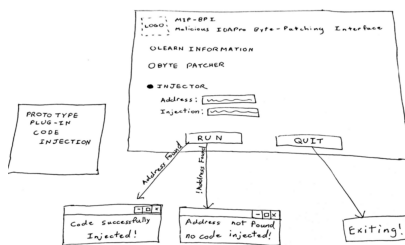 LOGO
MIP-BPI
Malicious IDAPro Byte-Patching Interface
LEARN INFORMATION
BYTE PATCHER
INJECTOR
Address:
Injection:
RUN
QUIT
PROTOTYPE
PLUG-IN
CODE
INJECTION
Address Found
!Address Found
Code Successfully
Injected!
Address not found
no code injected!
Exiting!